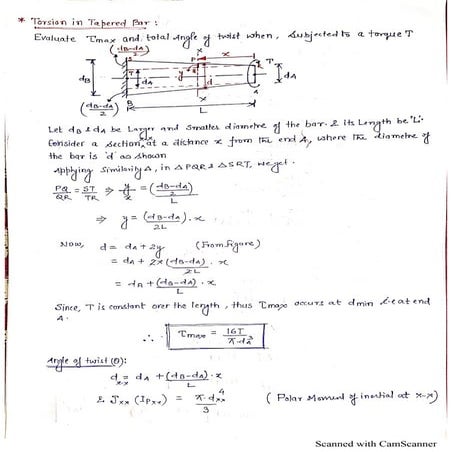 * Torsion in Tapered Bar :
Evaluate τmax and total angle of twist when, subjected to a torque T
(dB-dA)/2
x
T
dB
y
dA
d
dA
B
x
A
(dB-dA)/2
L
Let dB & dA be Larger and Smaller diametre of the bar & its Length be 'L'.
Consider a section, at a distance x from the end A, where the diametre of
the bar is 'd' as shown
Applying Similarity Δ, in ΔPQR & ΔSRT, we get.
PQ/QR = ST/TR ⇒ y/x = ((dB-dA)/2)/L
⇒ y = (dB-dA)/2L . x
Now, d = dA + 2y (From figure)
= dA + 2x(dB-dA)/2L . x
= dA + (dB-dA)/L . x
Since, T is constant over the length, thus τmax occurs at dmin i.e at end
A.
∴ τmax = 16T/π dA³
Angle of twist (θ):
dx-x = dA + (dB-dA)/L . x
& Jxx (IPxx) = π.dxx⁴/3 ( Polar Moment of inertial at x-x)
Scanned with CamScanner